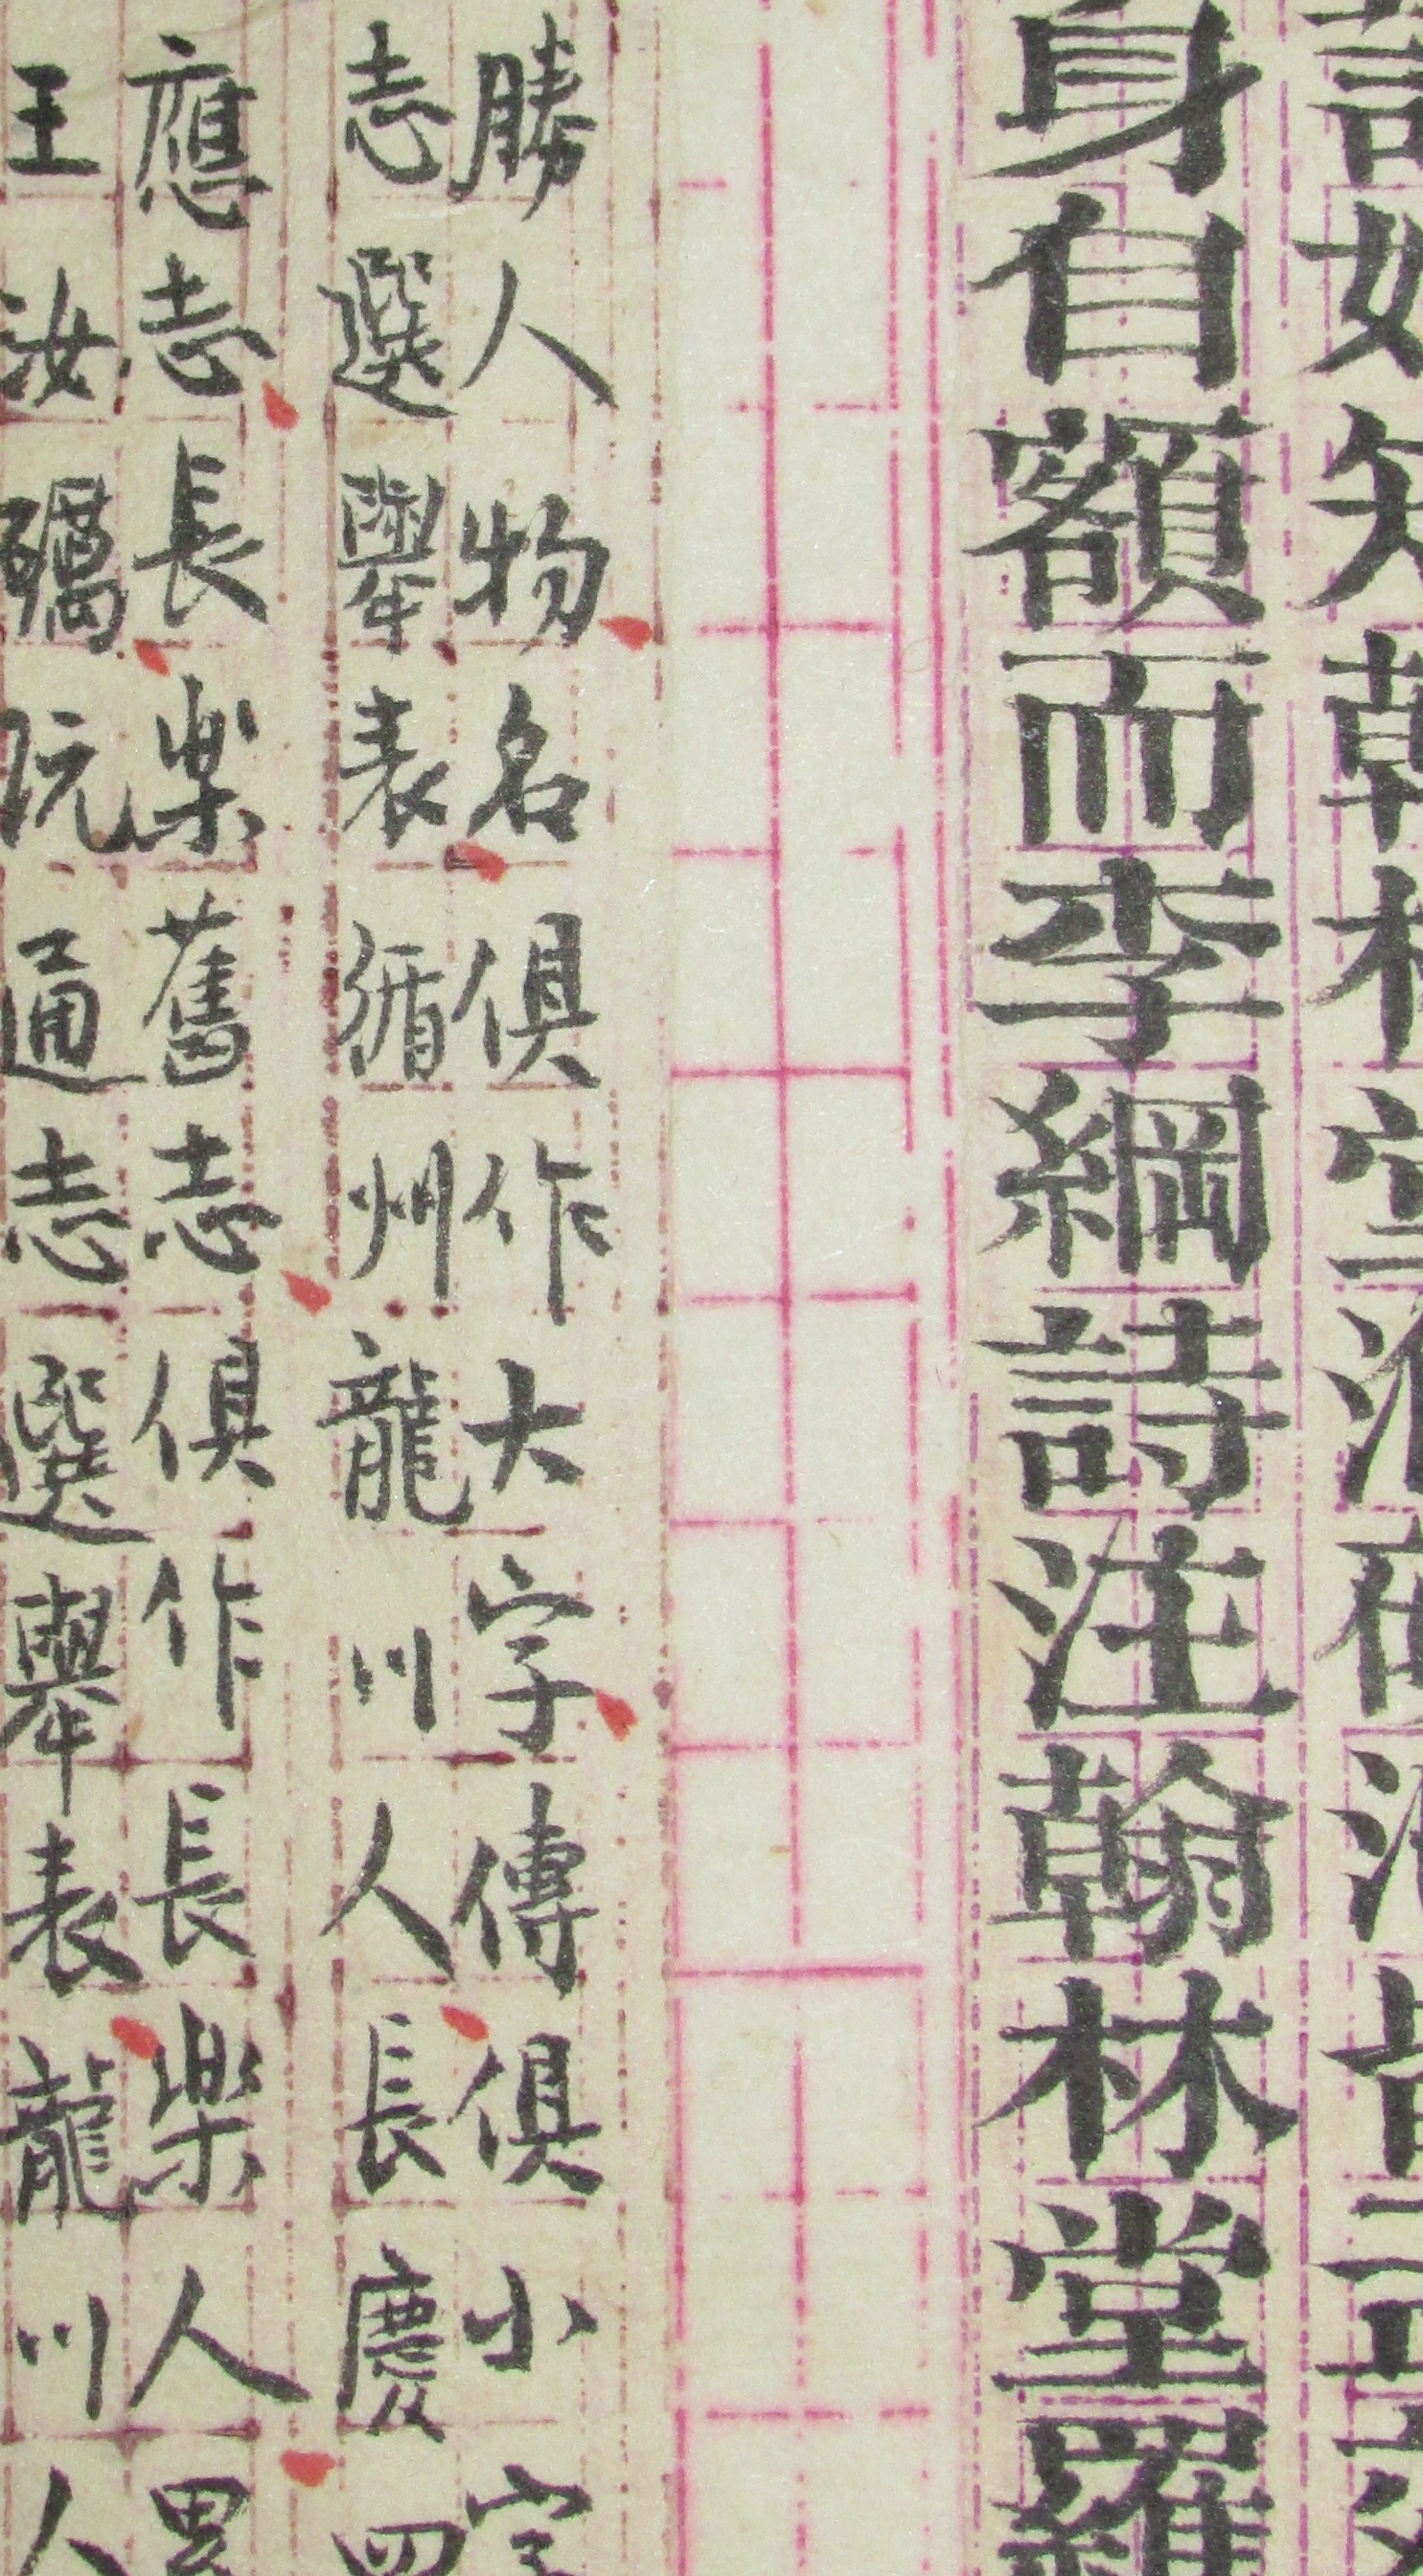 如知
身自額而李綱詩注翰林堂羅
勝人物名俱作大字傳俱小字
志選舉表循州龍川人長慶四
應志長楽舊志俱作長楽人
王汝礪阮通志選舉表龍川人